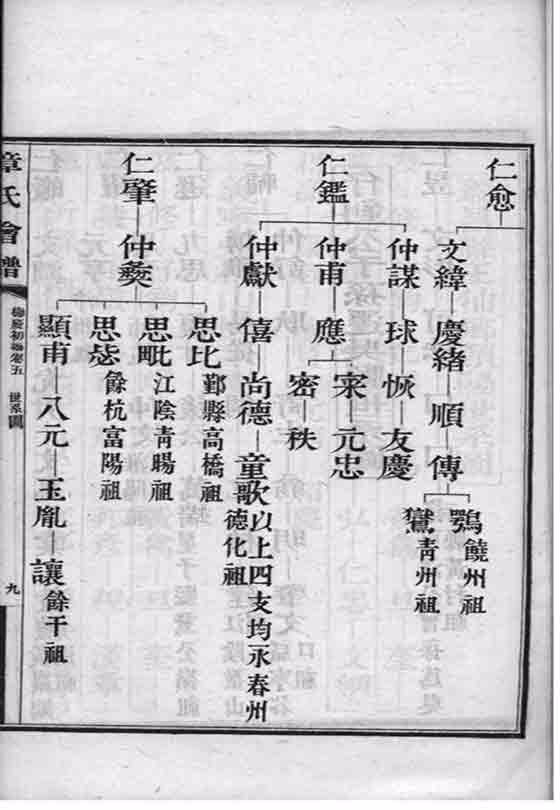 仁愈
文緯 慶緒 順 傳
鶚 饒州祖
鸑 青州祖
仁鑑
仲謀 球 恢 友慶
仲甫 應
宷 元忠
密 秩
仲獻 僖 尚德 童歌 以上四支均永春州
德化祖
仁肇 仲燊
思比 鄞縣高橋祖
思毗 江陰青暘祖
思毖 餘杭富陽祖
顯甫 八元 玉胤 讓 餘干祖
章氏會譜
初 卷五 世系圖
九